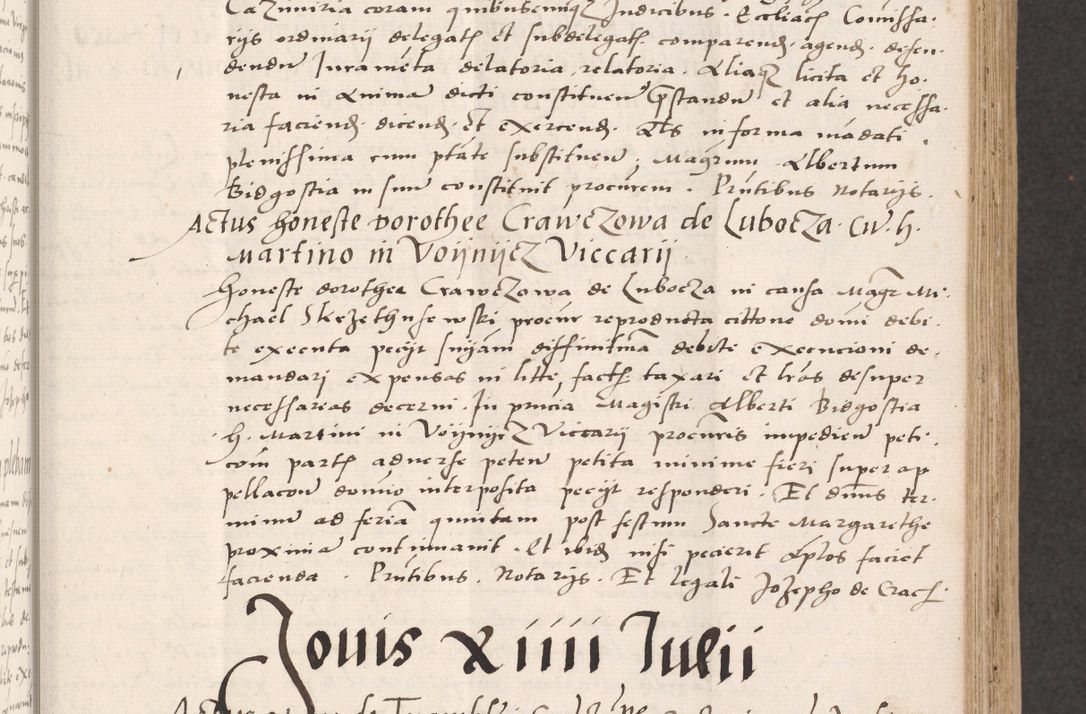 Cazimiria coram quibuscunq Iudicibus . Eccliack Comissa-
rijs ordinarij delegat et subdelegat comparend . agend . defen-
dendu Iurameta delatoria, relatoria . Aliaq licita et ho-
nesta in anima dicti constituen pstandu et alia necessa-
ria faciend . dicend . et exercend . Als in forma madati
plenissima cum ptate substituen . Magrum . Albertum
Bidgostia in suu constituit procurem . Pntibus Notarijs .
Actus honeste Dorothee Crawczowa de Lubocza . cu . h .
Martino in Voijnijcz Viccarij .
Honeste dorothea Crawczowa de Luboeza in causa Magr Mi-
chael Skrzethusewski procur reproducta cittone domi debi-
te executa pecijt snijam diffinitima debite execucioni de-
mandari expensas in litte fact taxari et lras desuper
necessarias decerni . In pncia Magistri Alberti Bidgostia
h . Martini in Voijnijcz Viccarij procuris impedien peti-
com part aduerse peten petita minime fieri super ap
pellacon domio interposita pecijt responderi . Et duus ter-
minu ad feria quintam post festum Sancte Margarethe
proxima continuauit . Et ibid nisi pecierit Aplos faciet
facienda . Pntibus . Notarijs . Et legali Jozepho de Crac .
Jouis xiiii Iulii